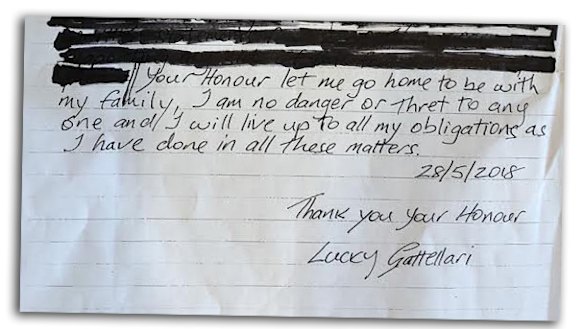 Your Honour let me go home to be with
my family, I am no danger or thret to any
one and I will live up to all my obligations as
I have done in all these matters.
28/5/2018
Thank you your Honour
Lucky Gattellari